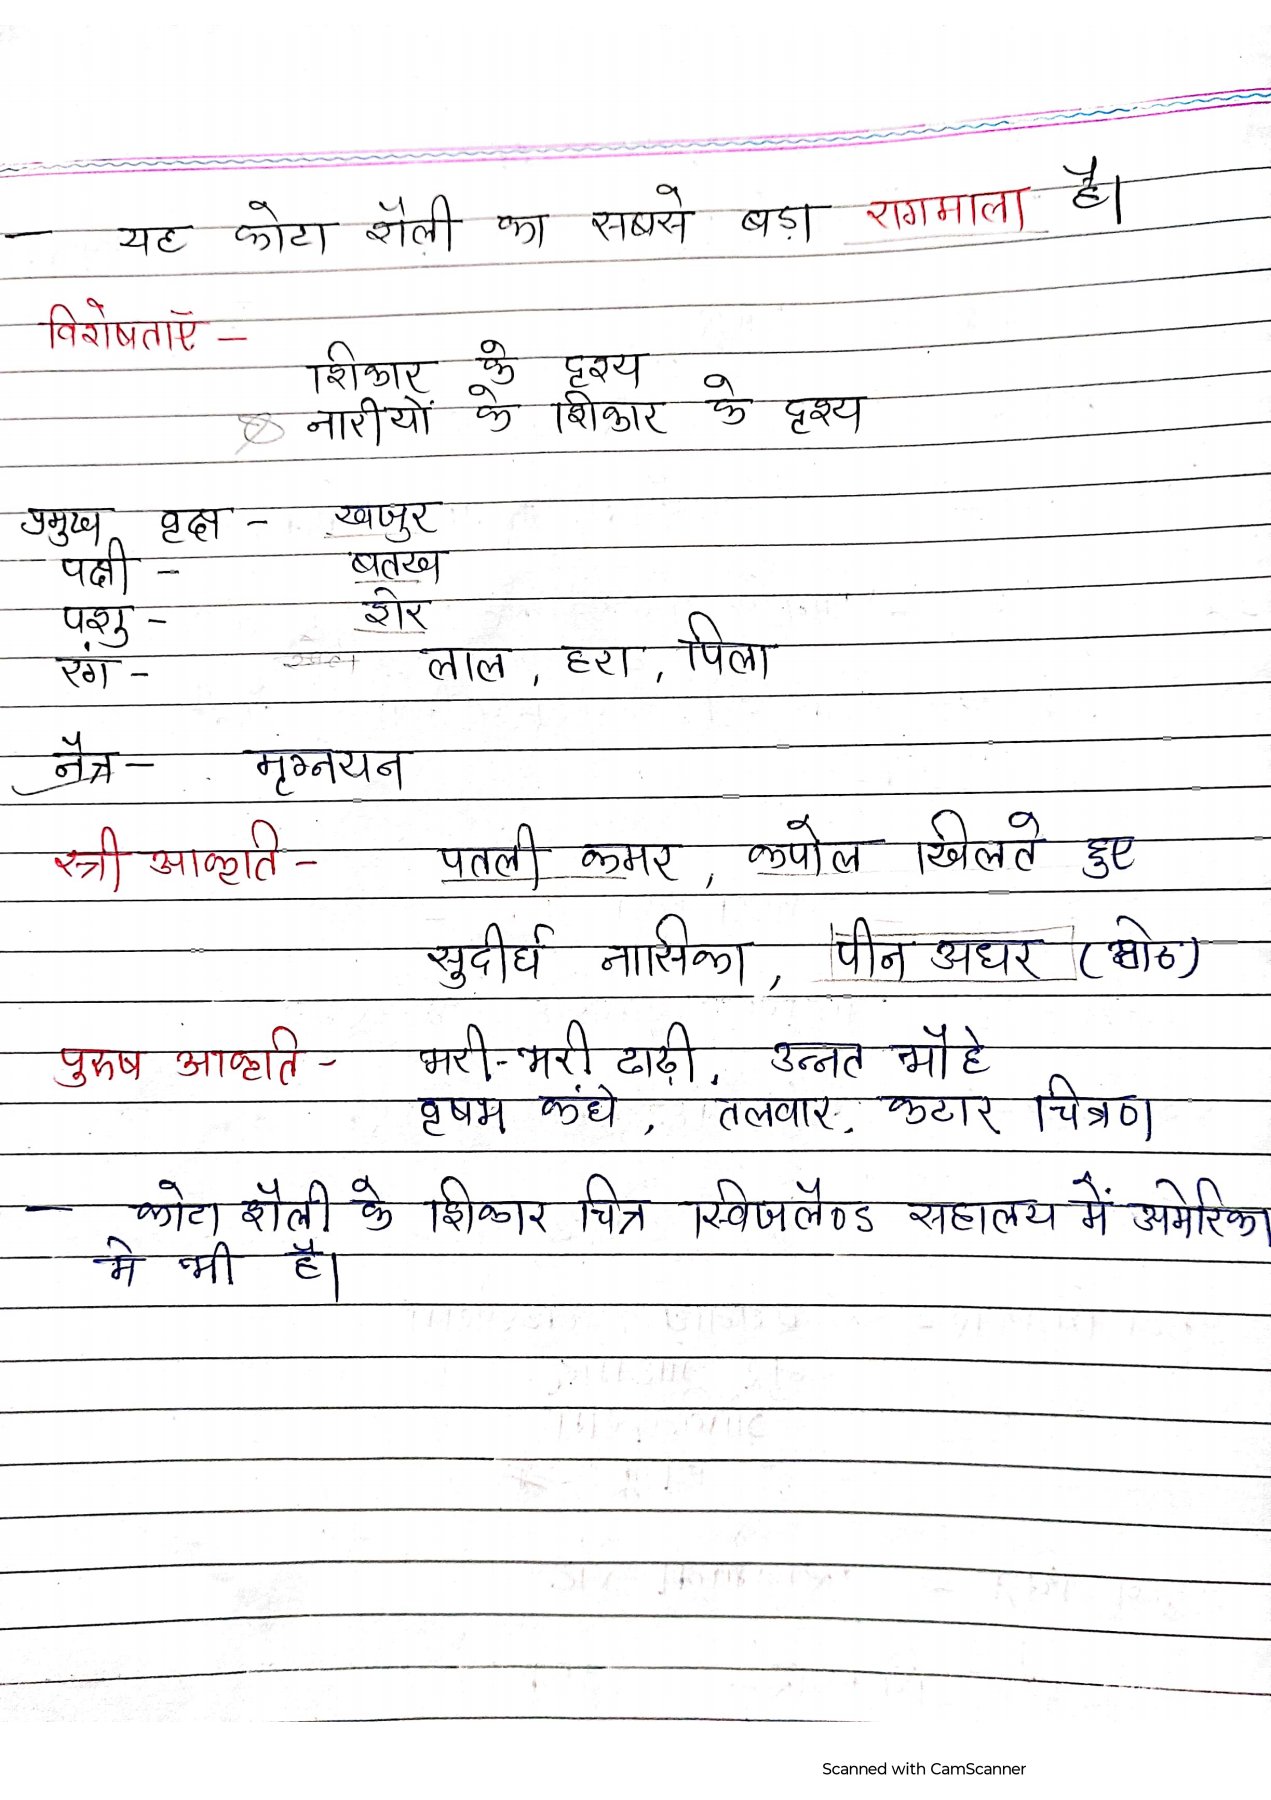 — यह कोटा शैली का सबसे बड़ा रागमाला है।
विशेषताएँ –
शिकार के दृश्य
नारीयों के शिकार के दृश्य
प्रमुख वृक्ष – खजुर
पक्षी – बतख
पशु – शेर
रंग – लाल , हरा , पिला
नैत्र – मृग्नयन
स्त्री आकृति – पतली कमर , कपोल खिलते हुए
सुदीर्घ नासिका , पीन अधर ( होठ )
पुरुष आकृति – भरी-भरी दाढ़ी , उन्नत भौहे
वृषभ कंधे , तलवार, कटार चित्रण
— कोटा शैली के शिकार चित्र स्विजलैण्ड सहालय में अमेरिका
मे भी है।
Scanned with CamScanner